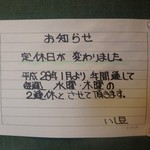 お知らせ
定休日が変わりました。
平成28年1月より年間通して
毎週、水曜・木曜の
2連休とさせて頂きます。
いし豆